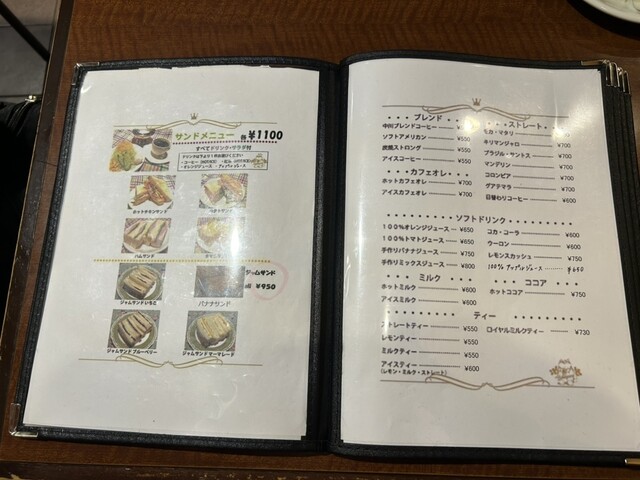 サンドメニュー 各 ¥1100
すべてドリンク・サラダ付
ホットチキンサンド
ハムサンド
ジャムサンド
¥950
ジャムサンドいちご
バナナサンド
ジャムサンドブルーベリー
ジャムサンドマーマレード
ブレンド
中川ブレンドコーヒー ¥550
ソフトアメリカン ¥550
炭焼ストロング ¥550
アイスコーヒー ¥550
カフェオレ
ホットカフェオレ ¥700
アイスカフェオレ ¥700
ストレート
モカ・マタリ ¥700
キリマンジャロ ¥700
ブラジル・サントス ¥700
マンデリン ¥700
コロンビア ¥700
グアテマラ ¥700
日替わりコーヒー ¥600
ソフトドリンク
100%オレンジジュース ¥650
100%トマトジュース ¥650
手作りバナナジュース ¥750
手作りミックスジュース ¥800
コカ・コーラ ¥600
ウーロン ¥600
レモンスカッシュ ¥750
100%アップルジュース ¥690
ミルク
ホットミルク ¥600
アイスミルク ¥600
ココア
ホットココア ¥750
ティー
ストレートティー ¥550
レモンティー ¥550
ミルクティー ¥550
アイスティー ¥600
(レモン・ミルク・ストレート)
ロイヤルミルクティー ¥730